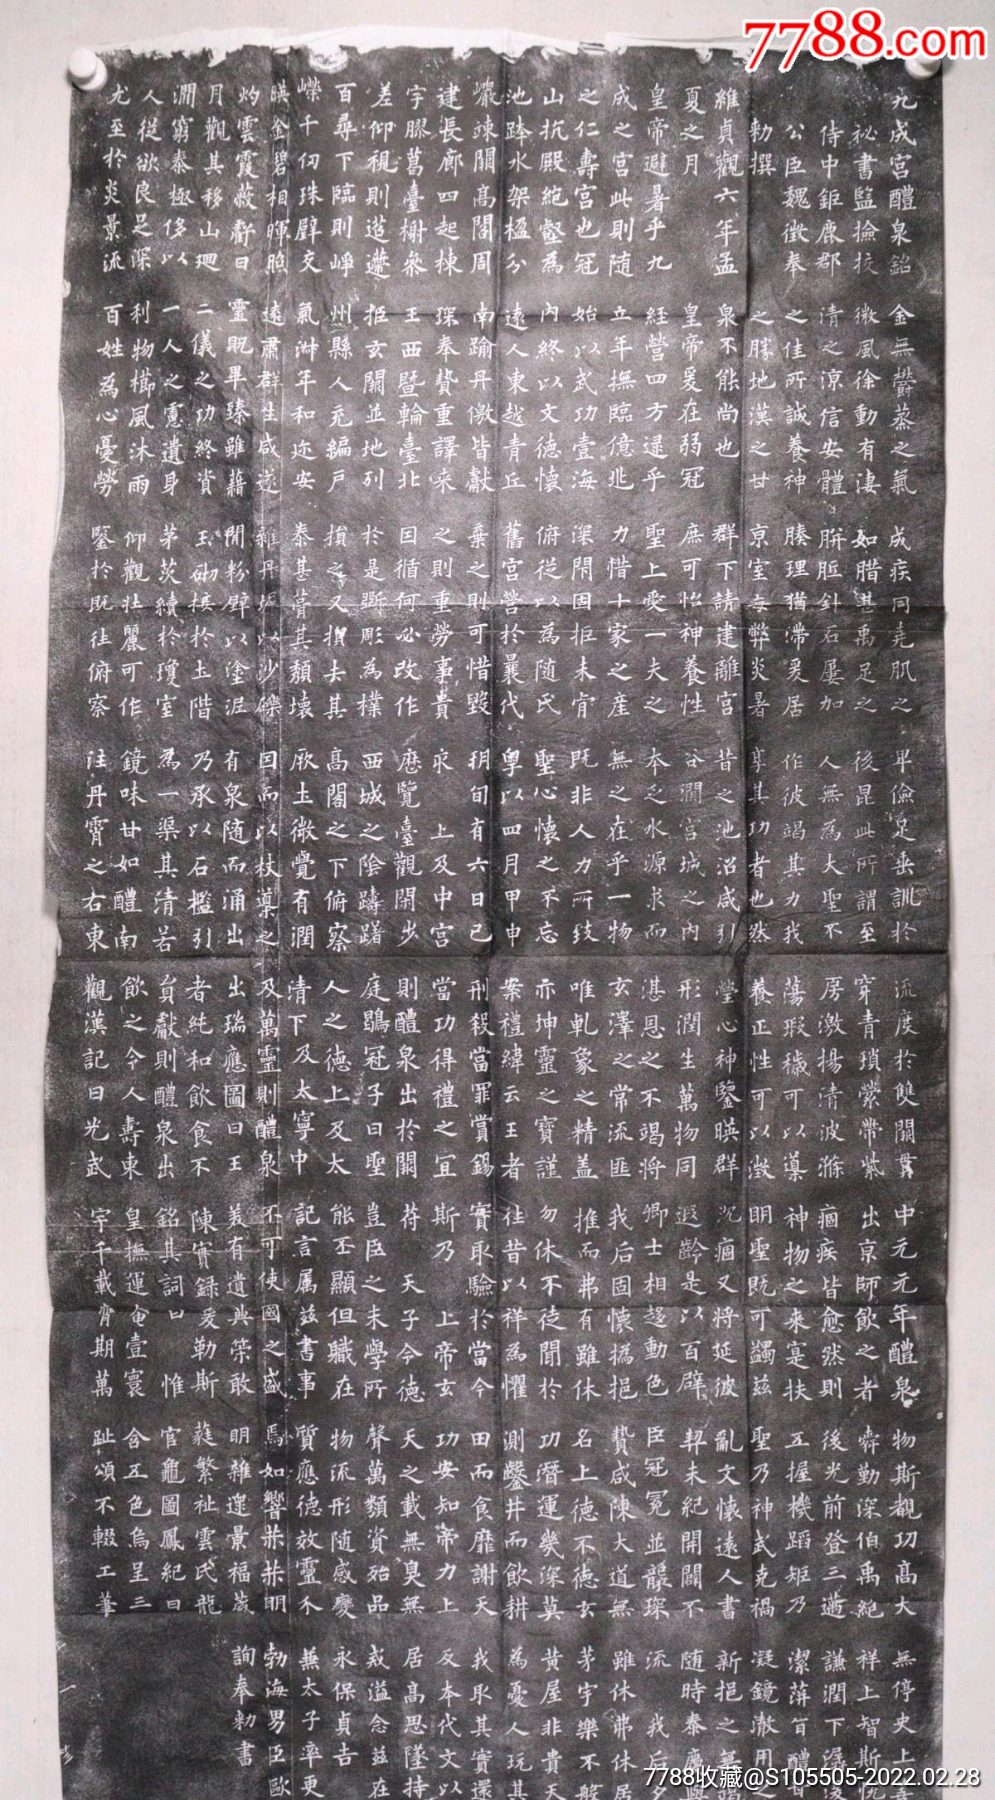 九成宮醴泉銘
祕書監撿挍
侍中鉅鹿郡
公臣魏徵奉
勑撰
維貞觀六年孟
夏之月
皇帝避暑乎九
成之宮此則隨
之仁壽宮也冠
山抗殿絕壑為
池跨水架楹分
巖竦闕高閣周
建長廊四起棟
宇膠葛臺榭參
差仰視則迢遰
百尋下臨則崢
嶸千仞珠璧交
暎金碧相暉照
灼雲霞蔽虧日
月觀其移山迴
澗窮泰極侈以
人從欲良足深
尤至於炎景流
金無鬱蒸之氣
微風徐動有淒
清之涼信安體
之佳所誠養神
之勝地漢之甘
泉不能尚也
皇帝爰在弱冠
經營四方逮乎
立年撫臨億兆
始以武功壹海
內終以文德懷
遠人東越青丘
南踰丹儌皆獻
琛奉贄重譯來
王西暨輪臺北
拒玄闕並地列
州縣人充編戶
氣淑年和迩安
遠肅群生咸遂
靈貺畢臻雖藉
二儀之功終資
一人之慮遺身
利物櫛風沐雨
百姓為心憂勞
成疾同堯肌之
如腊甚禹足之
胼胝針石屢加
腠理猶滯爰居
京室每弊炎暑
群下請建離宮
庶可怡神養性
聖上愛一夫之
力惜十家之產
深閇固拒未肯
俯從以為隨氏
舊宮營於曩代
棄之則可惜毀
之則重勞事貴
因循何必改作
於是斲彫為樸
損之又損去其
泰甚葺其頹壞
雜丹墀以沙礫
間粉壁以塗泥
玉砌接於土階
茅茨續於瓊室
仰觀壯麗可作
鑒於既往俯察
卑儉足垂訓於
後昆此所謂至
人無為大聖不
作彼竭其力我
享其功者也然
昔之池沼咸引
谷澗宮城之內
本乏水源求而
無之在乎一物
既非人力所致
聖心懷之不忘
粵以四月甲申
朔旬有六日己
亥 上及中宮
歷覽臺觀閑步
西城之陰躊躇
高閣之下俯察
厥土微覺有潤
因而以杖導之
有泉隨而涌出
乃承以石檻引
為一渠其清若
鏡味甘如醴南
注丹霄之右東
流度於雙闕貫
穿青瑣縈帶紫
房激揚清波滌
蕩瑕穢可以導
養正性可以澂
瑩心神鑒暎群
形潤生萬物同
湛恩之不竭將
玄澤之常流匪
唯乾象之精蓋
亦坤靈之寶謹
案禮緯云王者
刑殺當罪賞錫
當功得禮之宜
則醴泉出於闕
庭鶡冠子曰聖
人之德上及太
清下及太寧中
及萬靈則醴泉
出瑞應圖曰王
者純和飲食不
貢獻則醴泉出
飲之令人壽東
觀漢記曰光武
中元元年醴泉
出京師飲之者
痼疾皆愈然則
神物之來寔扶
明聖既可蠲茲
沉痼又將延彼
遐齡是以百辟
卿士相趨動色
我后固懷撝挹
推而弗有雖休
勿休不徒聞於
往昔以祥為懼
實取驗於當今
斯乃 上帝玄
符 天子令德
豈臣之末學所
能丕顯但職在
記言屬茲書事
不可使國之盛
美有遺典策敢
陳實錄爰勒斯
銘其詞曰 惟
皇撫運奄壹寰
宇千載膺期萬
物斯覩功高大
舜勤深伯禹絕
後光前登三邁
五握機蹈矩乃
聖乃神武克禍
亂文懷遠人書
契未紀開闢不
臣冠冕並襲琛
贄咸陳大道無
名上德不德玄
功潛運幾深莫
測鑿井而飲耕
田而食靡謝天
功安知帝力上
天之載無臭無
聲萬類資始品
物流形隨感變
質應德效靈介
焉如響赫赫明
明雜遝景福葳
蕤繁祉雲氏龍
官龜圖鳳紀日
含五色烏呈三
趾頌不輟工筆
無停史上善
祥上智斯悅
謙潤下潺湲
潔蓱旨醴甘
凝鏡澈用之
新挹之無竭
隨時泰慶與
流 我后夕
雖休弗休居
茅宇樂不般
黃屋非貴天
為憂人玩其
我取其實還
反本代文以
居高思墜持
戒溢念茲在
永保貞吉
兼太子率更
勃海男臣歐
詢奉勑書
7788.com
7788收藏@S105505-2022.02.28